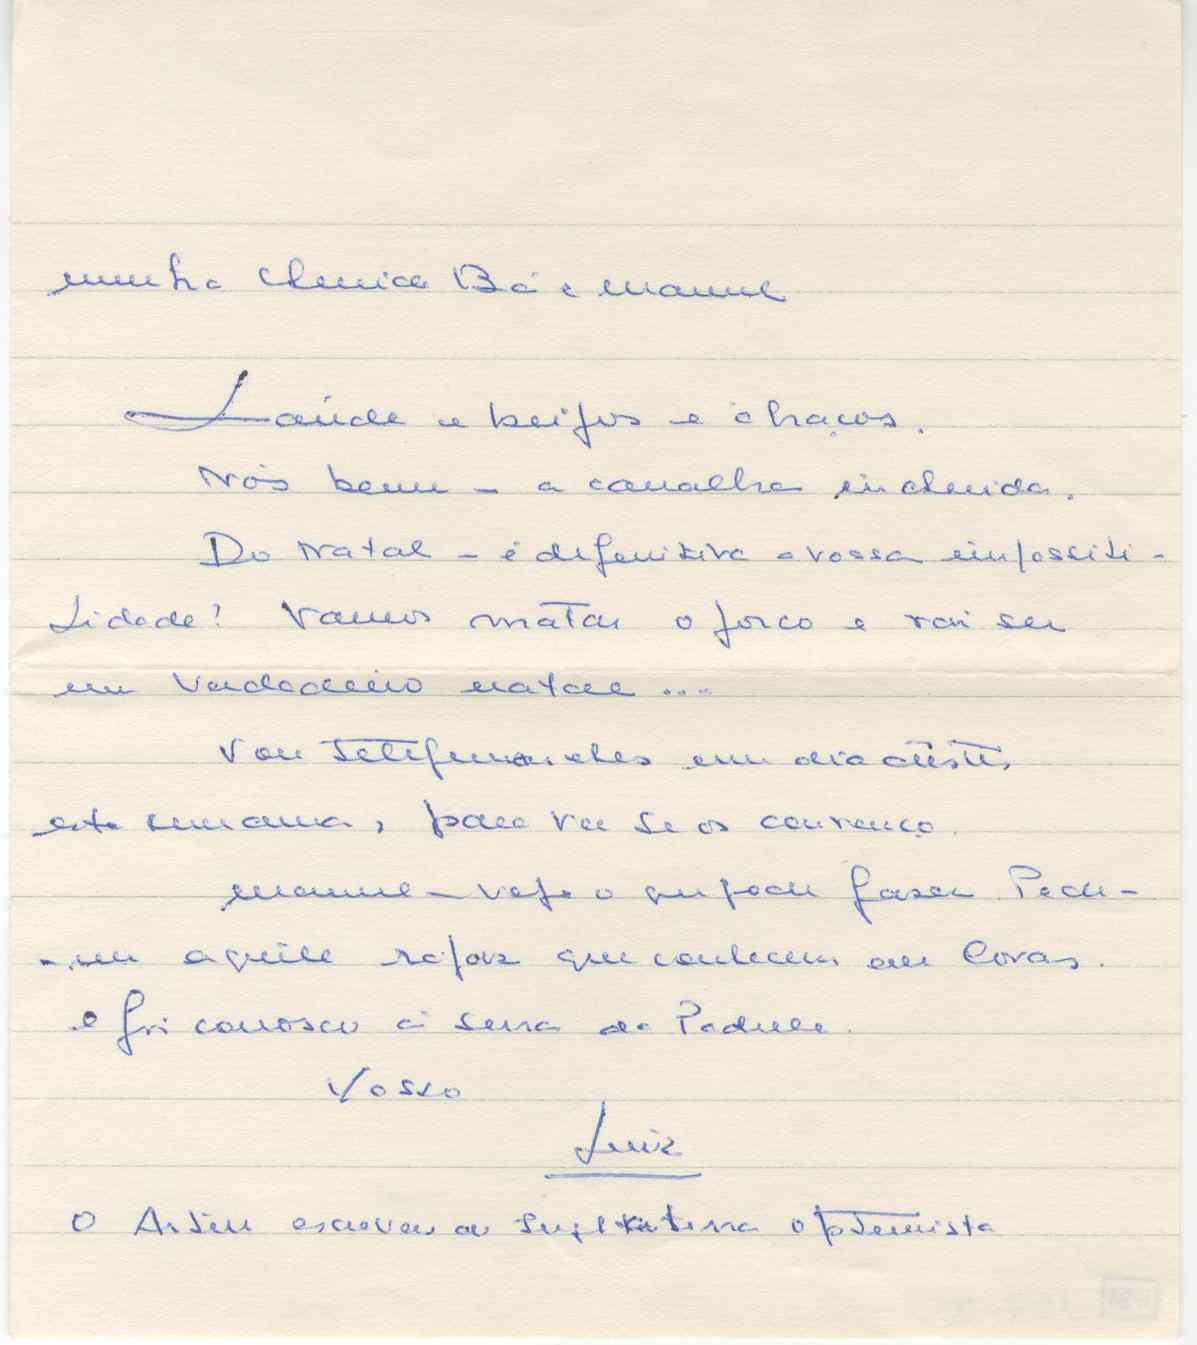 minha Chenica Bá e Manuel
Saúde e beijos e abraços.
Nós bem — a canalha
Do Natal — é definitiva a vossa impossibi-
lidade? Vamos matar o porco e vai ser
um verdadeiro natal ...
Vou telefonar-lhes um dia dêstes,
esta semana, para ver se os convenço.
Manuel — veja o que pode fazer. Pedi-
aquele rapaz que conhecem em Covas.
e foi conosco à serra da Padrela.
Vosso
Luiz
O Artur escreveu de Inglaterra optemista